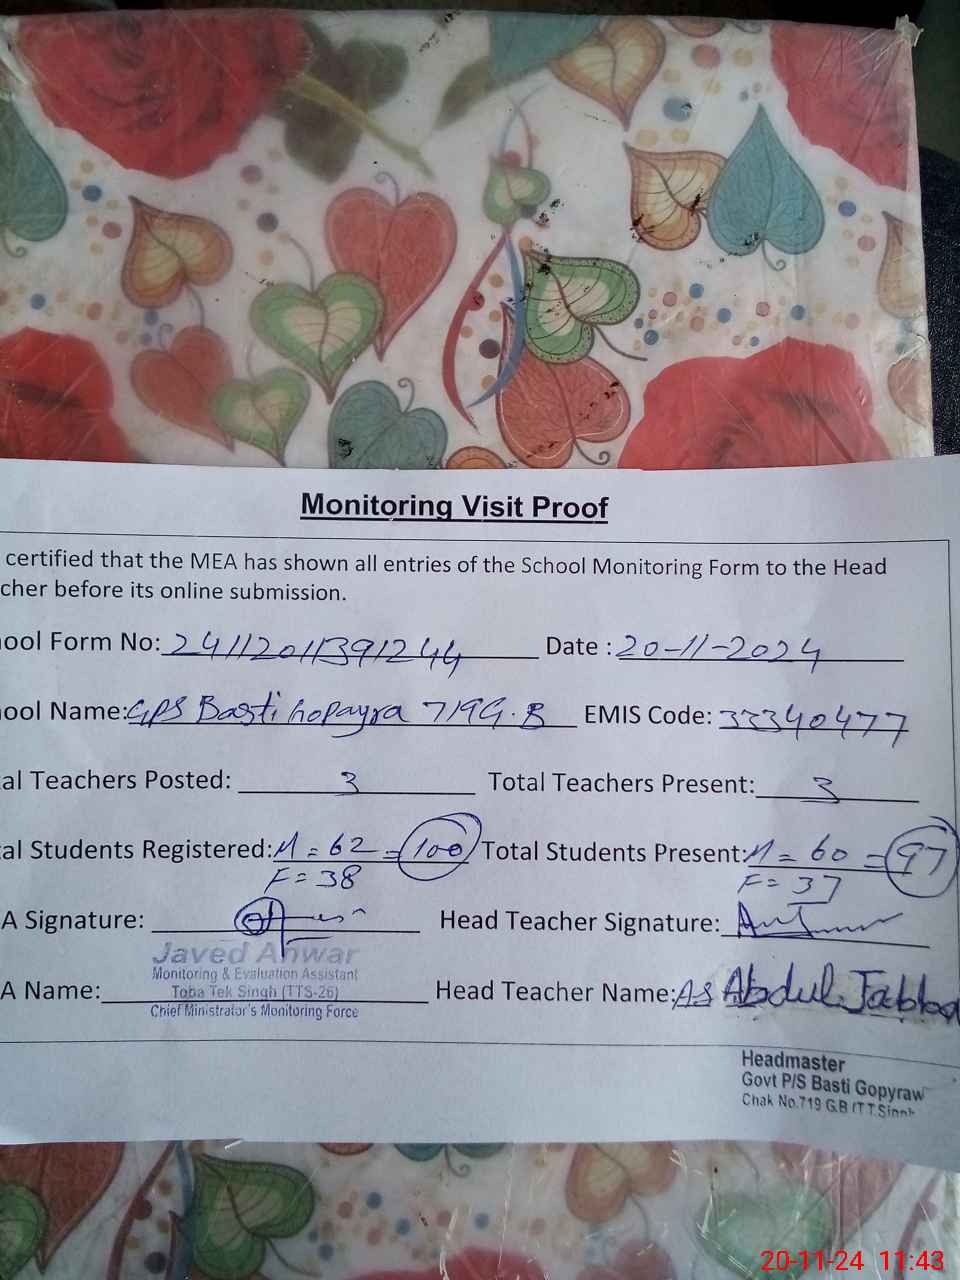 Monitoring Visit Proof
certified that the MEA has shown all entries of the School Monitoring Form to the Head
cher before its online submission.
ool Form No: 24112011391244 Date : 20-11-2024
ool Name: GPS Basti Gopayra 719 G.B EMIS Code: 33340477
al Teachers Posted: 3 Total Teachers Present: 3
al Students Registered: M = 62 = 100 Total Students Present: M = 60 = 97
F = 38 F = 37
A Signature: Head Teacher Signature:
Javed Anwar
Monitoring & Evaluation Assistant
A Name: Toba Tek Singh (TTS-26) Head Teacher Name: AS Abdul Jabba
Chief Ministrator's Monitoring Force
Headmaster
Govt P/S Basti Gopyraw
Chak No.719 G.B (T.T.Singh
20-11-24 11:43